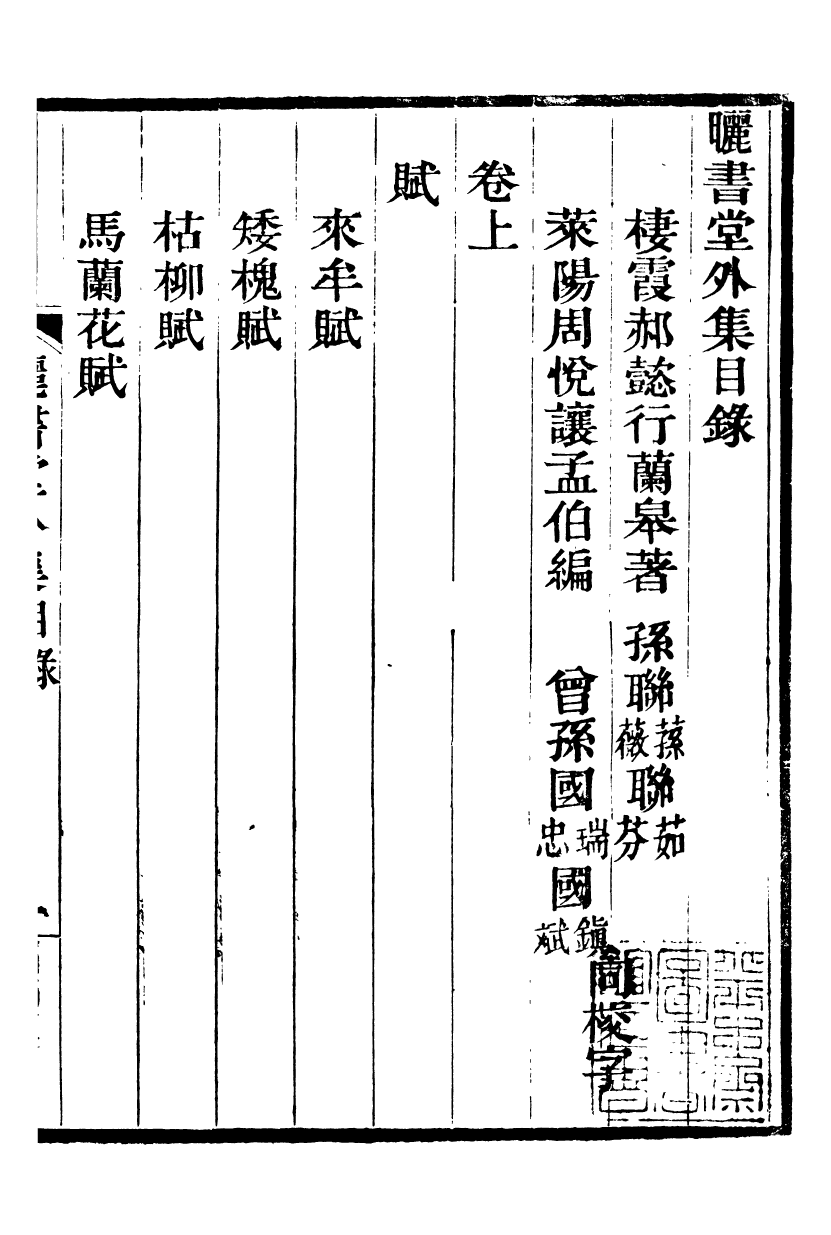 曬書堂外集目錄
棲霞郝懿行蘭皋著　孫聯蓀薇聯茹芬
萊陽周悅讓孟伯編　曾孫國瑞忠國鎭斌
同校字
卷上
賦
來牟賦
矮槐賦
枯柳賦
馬蘭花賦
曬書堂外集目錄